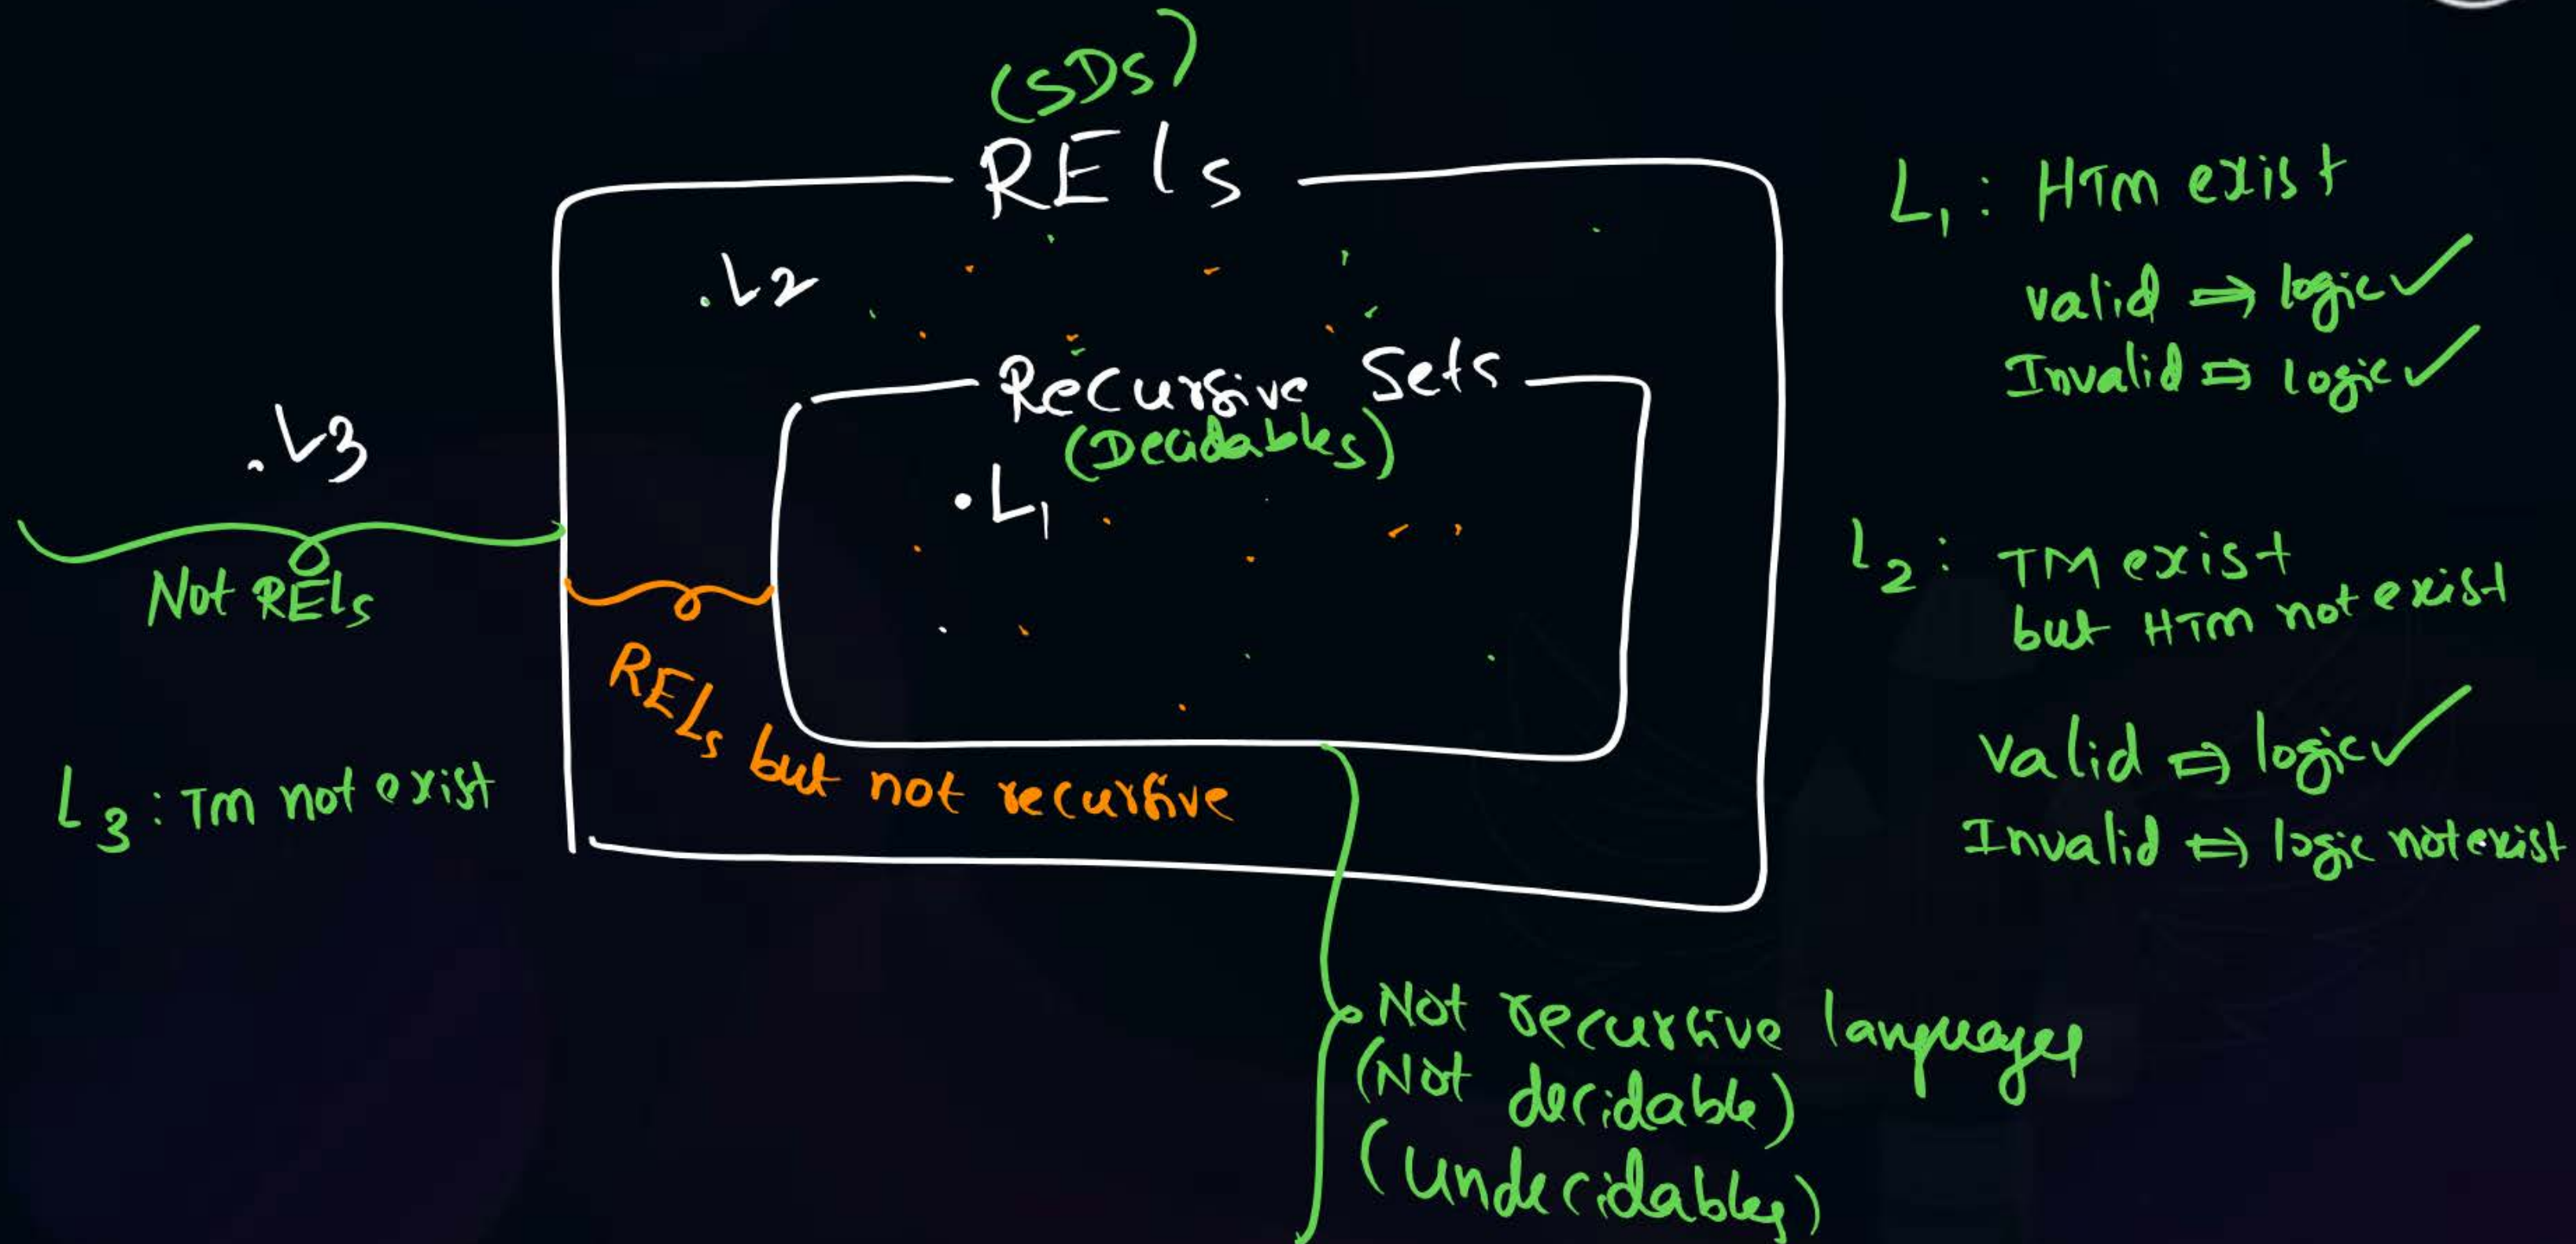 (SDS)
RELs
.L2
Recursive Sets
(Decidables)
.L1
.L3
Not RELs
RELs but not recursive
L3 : TM not exist
L1 : HTM exist
valid ⇒ logic ✓
Invalid ⇒ logic ✓
L2 : TM exist
but HTM not exist
Valid ⇒ logic ✓
Invalid ⇒ logic not exist
Not recursive languages
(Not decidable)
(Undecidables)